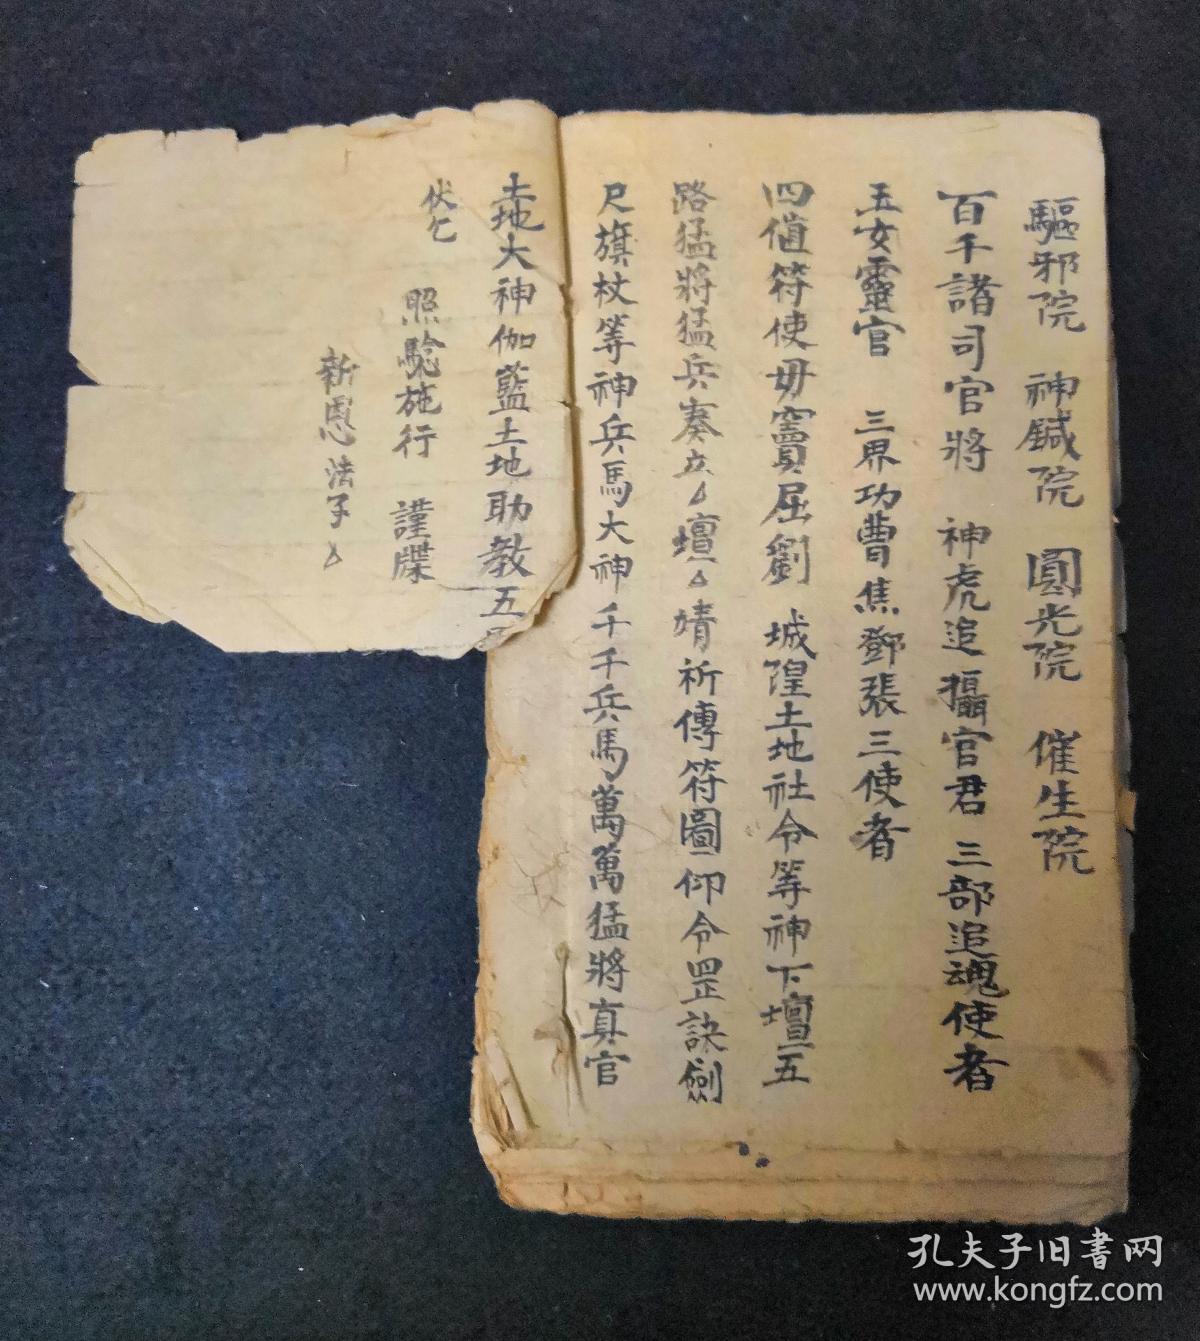 驅邪院 神鍼院 圓光院 催生院
百千諸司官將 神虎追攝官君 三部追魂使者
玉女靈官 三界功曹焦鄧張三使者
四值符使毋竇屈劉 城隍土地社令等神下壇五
路猛將猛兵奏立△壇△靖祈傳符圖仰令罡訣劍
尺旗杖等神兵馬大神千千兵馬萬萬猛將真官
土地大神伽藍土地助教五
伏乞
照驗施行 謹牒
新恩法子△
孔夫子旧书网
www.kongfz.com